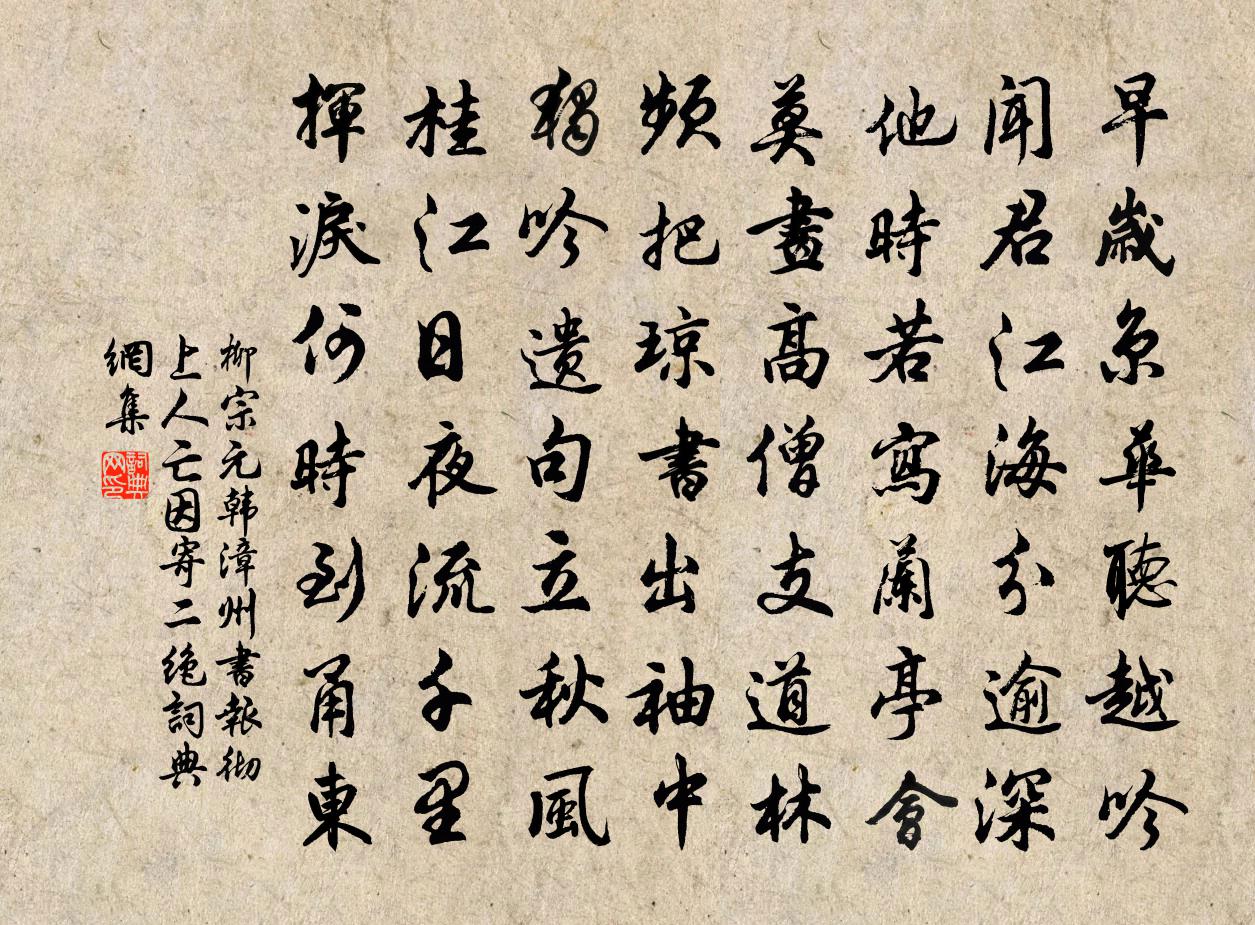 早歲京華聽越吟
聞君江海分逾深
他時若寫蘭亭會
莫畫髙僧支道林
频把琼書出袖中
獨吟遗句立秋風
桂江日夜流千里
揮淚何時到甬東
柳宗元韩漳州書報彻
上人亡因寄二绝詞典
網集
詞典
网印